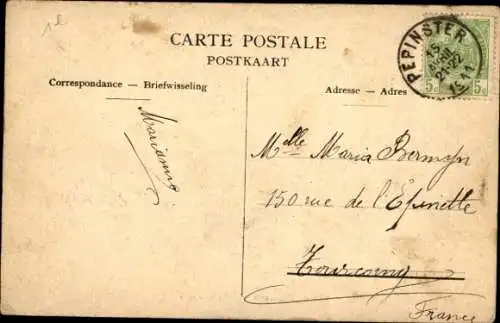 1 E
CARTE POSTALE
POSTKAART
Correspondance — Briefwisseling
Adresse — Adres
PEPINSTER
15
21-22
1911
5c 5c
Melle Maria
150 rue de l'Epinette
Tourcoing
France